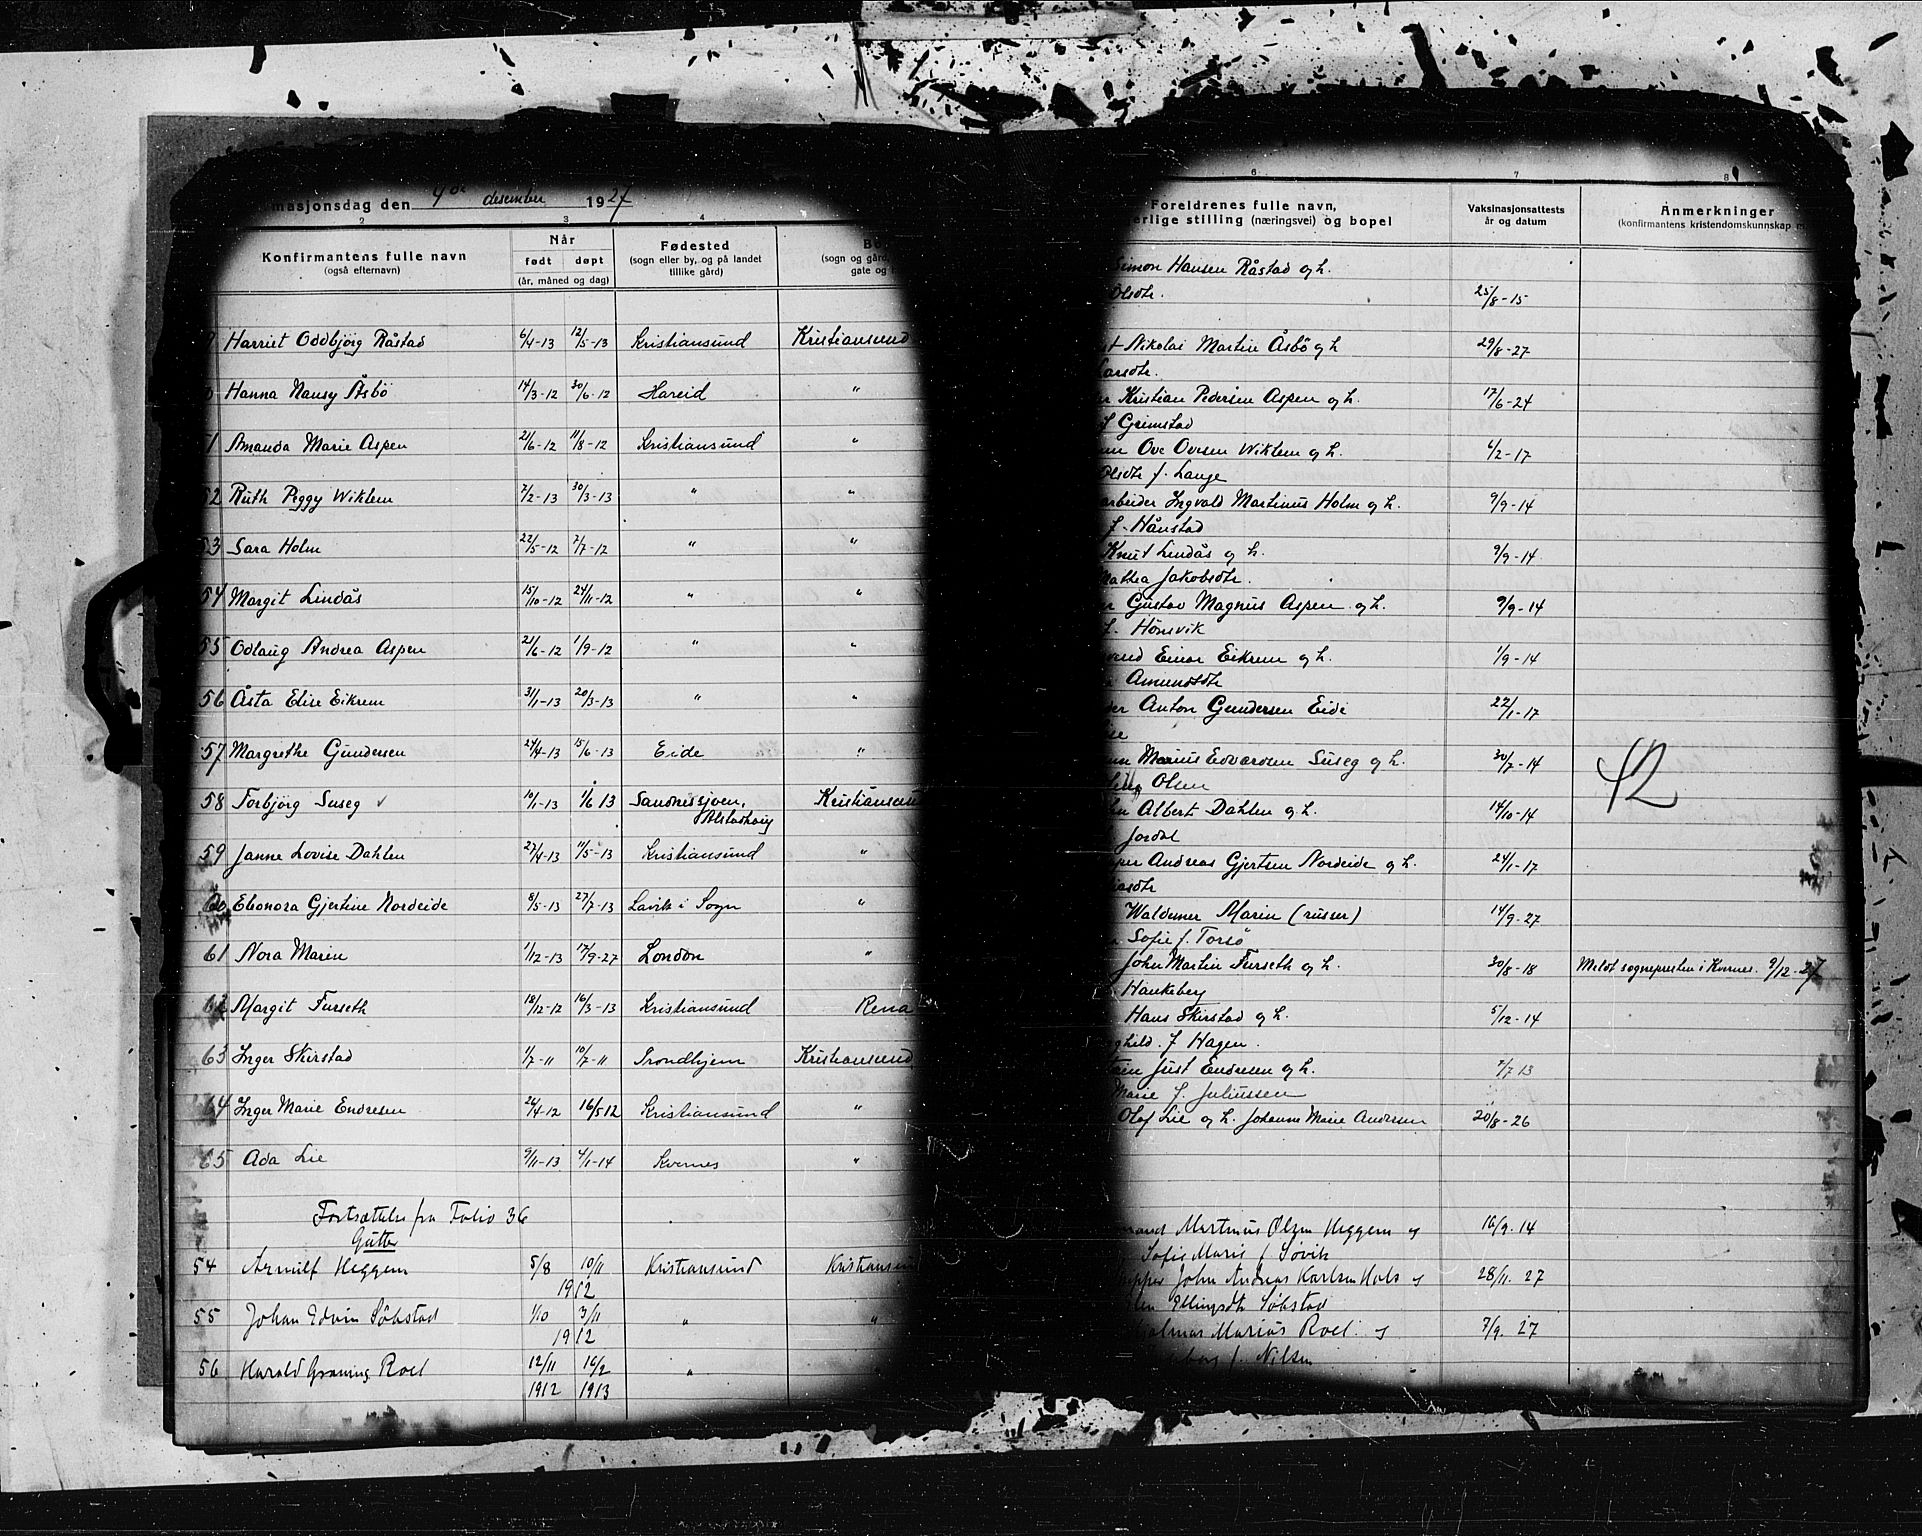 masjonsdag den 4de desember 1927
2 3 4
Konfirmantens fulle navn
(også efternavn)
Når
født døpt
(år, måned og dag)
Fødested
(sogn eller by, og på landet
tillike gård)
(sogn og gård,
gate og
Harriet Oddbjörg Råstad 6/4-13 12/5-13 Kristiansund Kristiansund
Hanna Nansy Åsbö 14/3-12 30/6-12 Hareid "
Amanda Marie Aspen 21/6-12 11/8-12 Kristiansund "
52 Ruth Peggy Wiklem 2/2-13 30/3-13 " "
53 Sara Holm 22/5-12 7/7-12 " "
54 Margit Lindås 15/10-12 24/11-12 " "
55 Odlaug Andrea Aspen 21/6-12 1/9-12 " "
56 Åsta Elise Eikrem 31/1-13 20/3-13 " "
57 Margrethe Gundersen 24/4-13 15/6-13 Eide "
58 Torbjörg Suseg 10/1-13 1/6 13 Sandnessjøen, Kristiansun
Alstadhaug
59 Janne Lovise Dahlen 27/4-13 11/5-13 Kristiansund "
60 Elonora Gjertine Nordeide 8/5-13 27/7-13 Lavik i Sogn "
61 Nora Marin 1/12-13 17/9-27 London "
62 Margit Furseth 18/12-12 16/3-13 Kristiansund Rena
63 Inger Skirstad 1/7-11 10/7-11 Trondhjem Kristiansund
64 Inger Marie Endresen 24/4-12 16/5 12 Kristiansund "
65 Ada Lie 9/11-13 4/1-14 Kvernes "
Fortsættelse fra Folio 36
Gutter
54 Arnulf Heggem 5/8 10/11 Kristiansund Kristiansun
1912
55 Johan Edvin Söbstad 1/10 3/11 " "
1912
56 Harald Roel 12/11 16/2 "
1912 1913
6 7 8
Foreldrenes fulle navn,
erlige stilling (næringsvei) og bopel
Vaksinasjonsattests
år og datum
Anmerkninger
(konfirmantens kristendomskunnskap m
Simon Hansen Råstad og h.
Olsdtr. 25/8-15
Nikolai Martin Åsbö og h 29/8-27
Larsdtr.
Kristian Pedersen Aspen og h. 17/6-24
f Grimstad
Ove Ovesen Wiklem og h. 6/2-17
Olsdtr f. Lange
arbeider Ingvald Martinus Holm og h. 9/9-14
f. Hånstad
Knut Lindås og h. 9/9-14
Mathea Jakobsdtr.
Gustav Magnus Aspen og h. 9/9-14
f. Hönsvik
Einar Eikrem og h. 1/9-14
Amundsdtr
Anton Gundersen Eide 22/1-17
Marius Edvardsen Suseg og h. 30/7-14
Olsen 42
Albert Dahlen og h. 14/10-14
Jordal
Andreas Gjertsen Nordeide og h. 24/1-17
Waldemar Marin (russer) 14/9-27
Sofie f. Torsö
John Martin Furseth og h. 30/8-18 Meldt sognepresten i Kvernes. 9/12-27
Haukeberg
Hans Skirstad og h. 5/12-14
f Hagen.
Just Endresen og h. 7/7 13
Marie f. Juliussen
Olaf Lie og h. Johanne Marie Andersen 20/8-26
Martinus Olsen Heggem og 16/9.14
Sofie Marie f Sövik
John Andreas Karlsen Hals og 28/11.27
Ellingsdtr Söbstad
Hjalmar Marius Roel. og 7/9.27
f. Nilsen